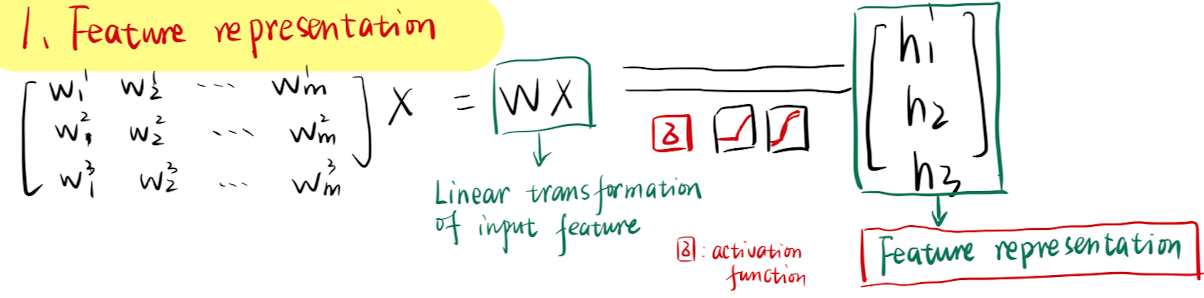 1. Feature representation
w₁¹ w₂¹ ... wₘ¹
w₁² w₂² ... wₘ²
w₁³ w₂³ ... wₘ³
X = WX
h1
h2
h3
δ
Linear transformation
of input feature
δ: activation
function
Feature representation